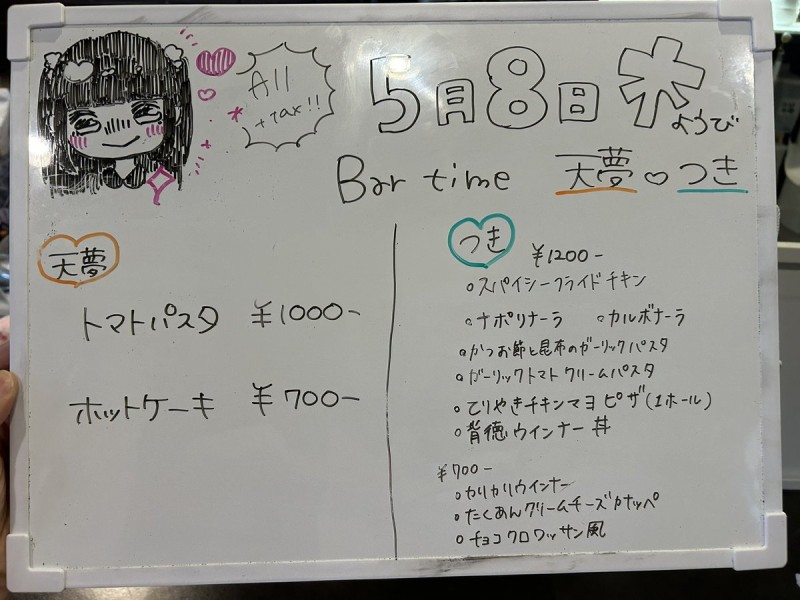 All
+tax!!
5月8日 水
ようび
Bar time 天夢♡つき
天夢
トマトパスタ ¥1000-
ホットケーキ ¥700-
つき
¥1200-
◦スパイシーフライドチキン
◦ナポリナーラ ◦カルボナーラ
◦かつお節と昆布のガーリックパスタ
◦ガーリックトマトクリームパスタ
◦てりやきチキンマヨピザ(1ホール)
◦背徳ウインナー丼
¥700-
◦カリカリウインナー
◦たくあんクリームチーズカナッペ
◦チョコクロワッサン風